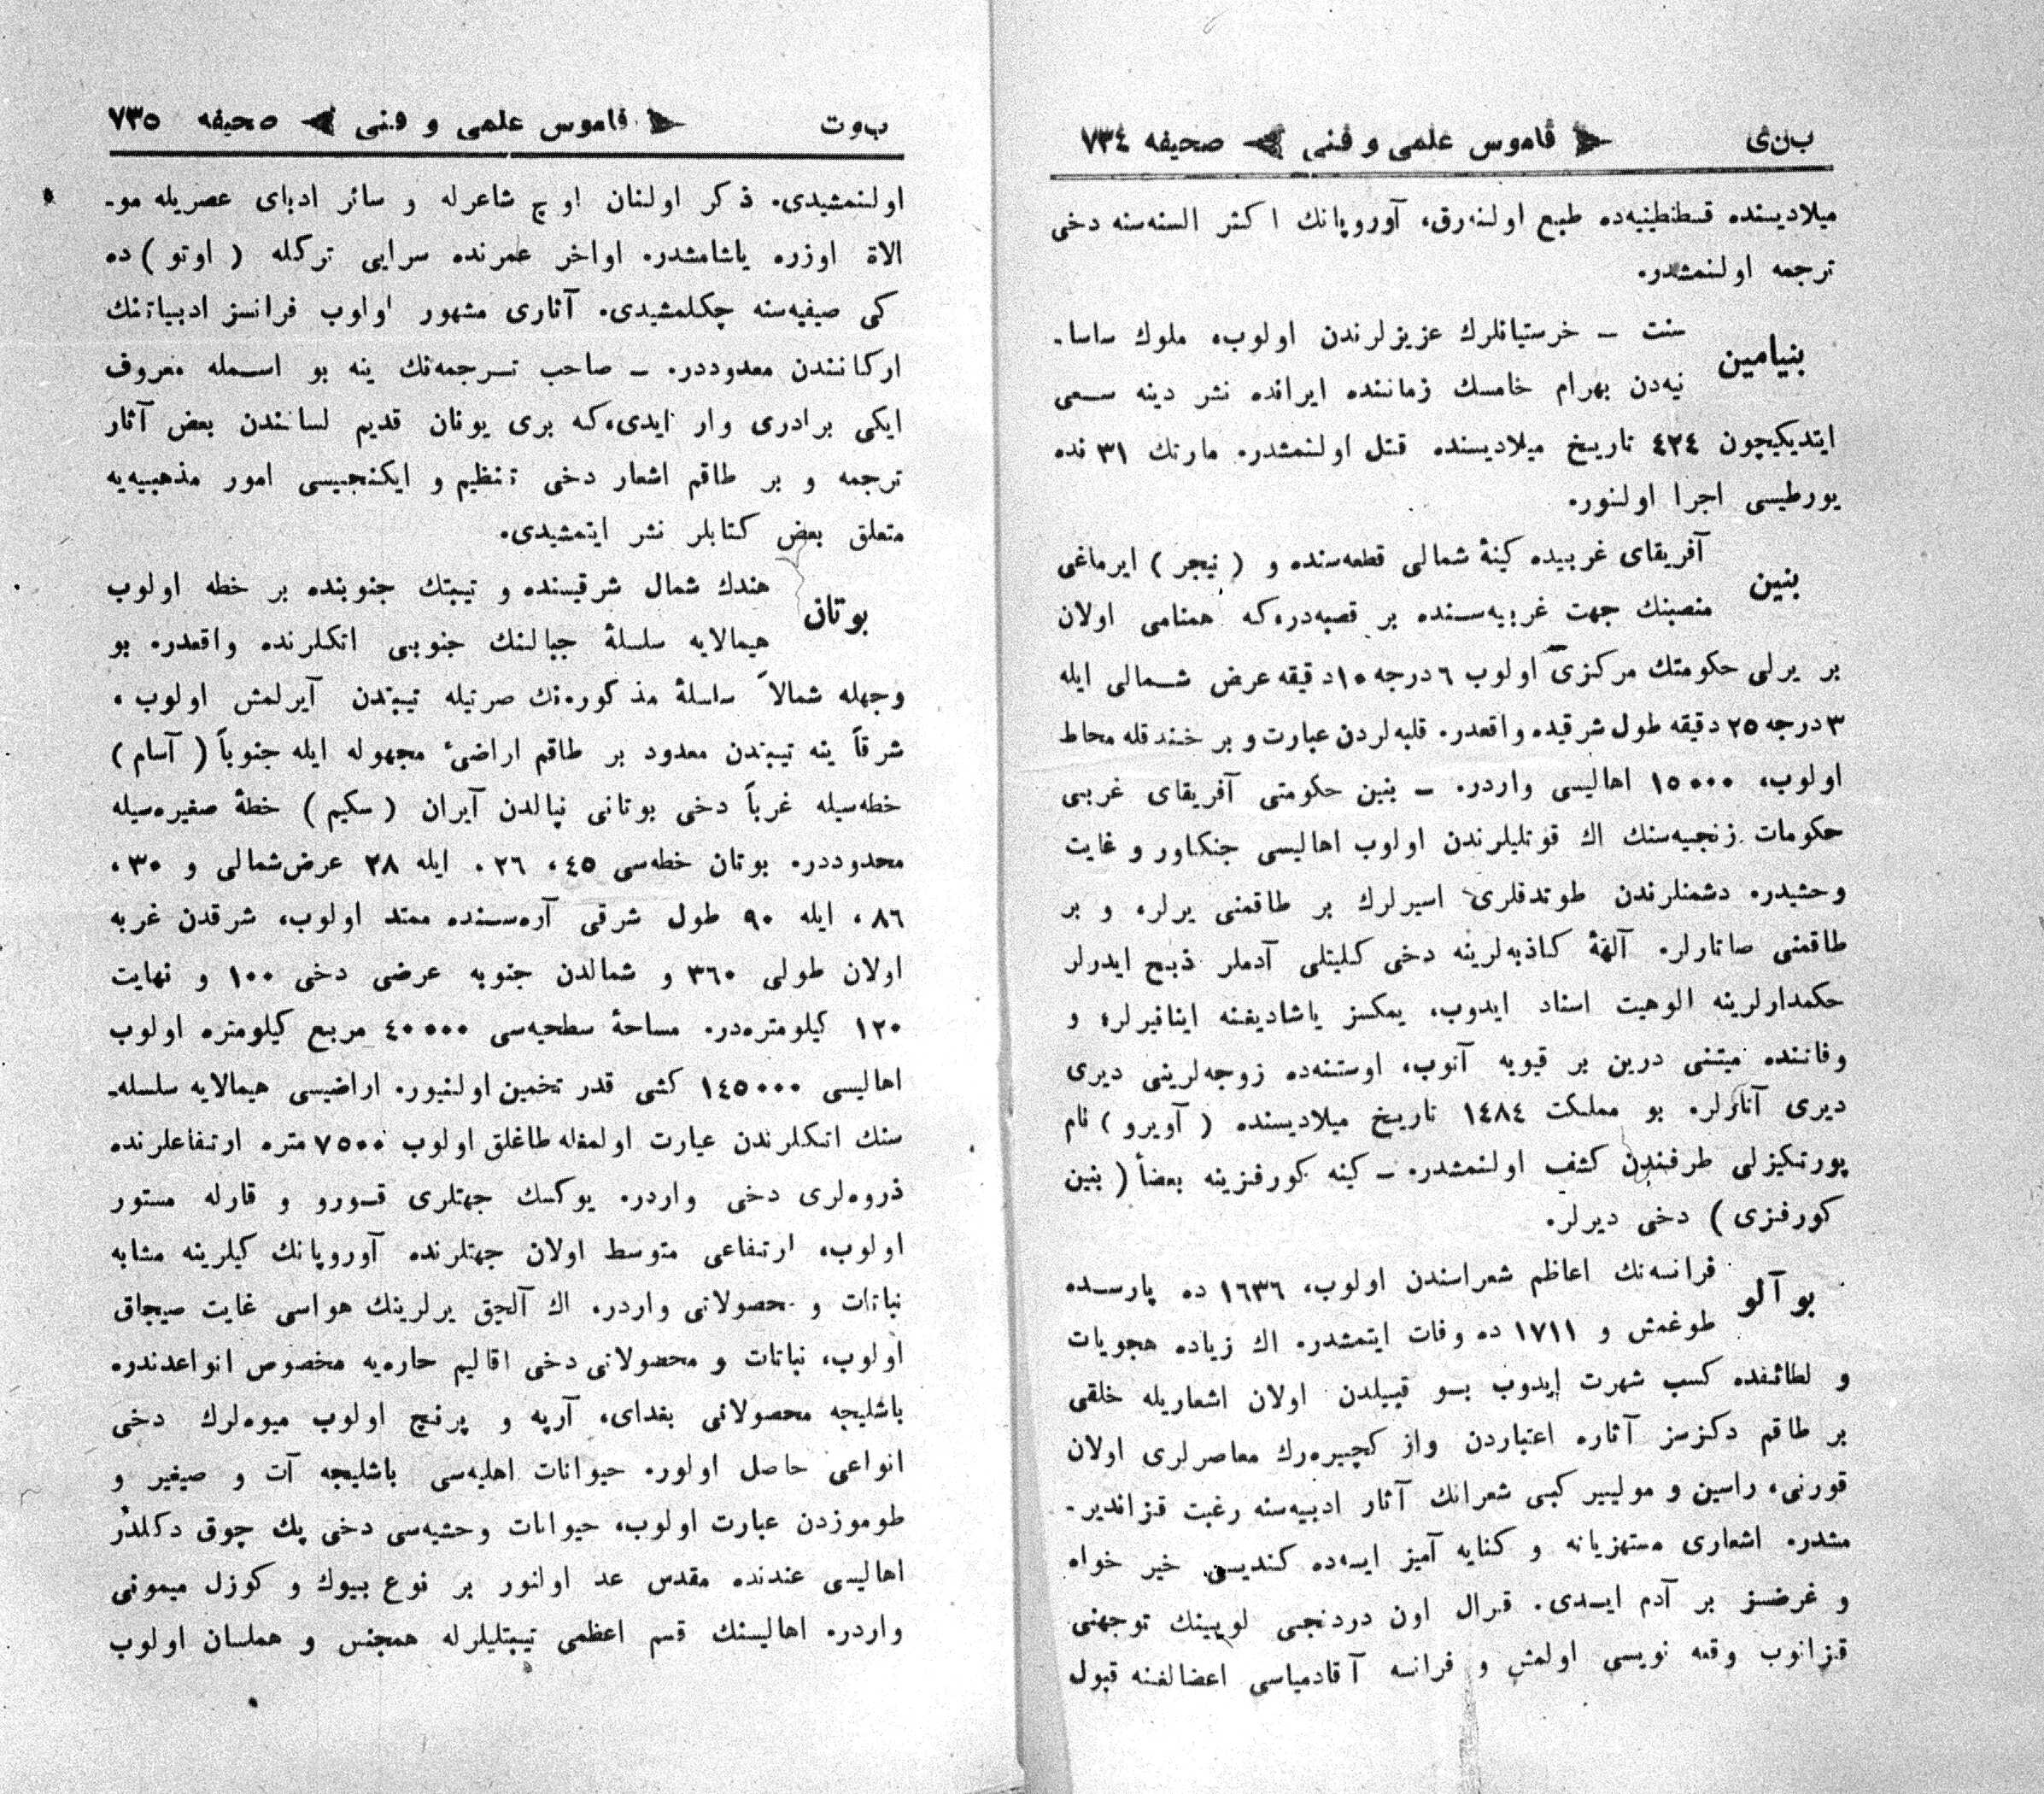 ب‌ن‌ی ﴿ قاموس علمی و فنی ﴾ صحیفه ٧٣٤
میلادیسنده قسطنطینیه‌ده طبع اولنه‌رق، آوروپانك اكثر السنه‌سنه دخی
ترجمه اولنمشدر.
بنیامین
سنت ــ خرستیانلرك عزیزلرندن اولوب، ملوك ساسا-
نیه‌دن بهرام خامسك زماننده ایرانده نشر دینه سعی
ایتدیكیچون ٤٢٤ تاریخ میلادیسنده قتل اولنمشدر. مارتك ٣١ نده
یورطیسی اجرا اولنور.
بنین
آفریقای غربیده كینهٔ شمالی قطعه‌سنده و ( نیجر ) ایرماغی
منصبنك جهت غربیه‌سنده بر قصبه‌در، كه همنامی اولان
بر یرلی حكومتك مركزی اولوب ٦ درجه ١٠ دقیقه عرض شمالی ایله
٣ درجه ٢٥ دقیقه طول شرقیده واقعدر. قلبه‌لردن عبارت و بر خندقله محاط
اولوب، ١٥٠٠٠ اهالیسی واردر. ــ بنین حكومتی آفریقای غربی
حكومات زنجیه‌سنك اك قوتلیلرندن اولوب اهالیسی جنكاور و غایت
وحشیدر. دشمنلرندن طوتدقلری اسیرلرك بر طاقمنی یرلر، و بر
طاقمنی صاتارلر. آلههٔ كاذبه‌لرینه دخی كلیتلی آدملر ذبح ایدرلر
حكمدارلرینه الوهیت اسناد ایدوب، یمكسز یاشادیغنه اینانیرلر؛ و
وفاتنده میتنی درین بر قیویه آتوب، اوستنه‌ده زوجه‌لرینی دیری
دیری آتارلر. بو مملكت ١٤٨٤ تاریخ میلادیسنده ( آویرو ) نام
پورتكیزلی طرفندن كشف اولنمشدر. ــ كینه كورفزینه بعضاً ( بنین
كورفزی ) دخی دیرلر.
بوآلو
فرانسه‌نك اعاظم شعراسندن اولوب، ١٦٣٦ ده پارسده
طوغمش و ١٧١١ ده وفات ایتمشدر. اك زیاده هجویات
و لطائفده كسب شهرت ایدوب بو قبیلدن اولان اشعاریله خلقی
بر طاقم دكرسز آثاره اعتباردن وازكچیره‌رك معاصرلری اولان
قورنی، راسین و مولییر كبی شعرانك آثار ادبیه‌سنه رغبت قزاندیر-
مشدر. اشعاری مستهزیانه و كنایه آمیز ایسه‌ده كندیسی خیر خواه
و غرضسز بر آدم ایدی. قرال اون دردنجی لویینك توجهنی
قزانوب وقعه نویسی اولمش و فرانسه آقادمیاسی اعضالغنه قبول
ب‌وت ﴿ قاموس علمی و فنی ﴾ صحیفه ٧٣٥
اولنمشیدی. ذكر اولنان اوچ شاعرله و سائر ادبای عصریله مو-
الاة اوزره یاشامشدر. اواخر عمرنده سرایی تركله ( اوتو ) ده
كی صیفیه‌سنه چكلمشیدی. آثاری مشهور اولوب فرانسز ادبیاتنك
اركانندن معدوددر. ــ صاحب ترجمه‌نك ینه بو اسمله معروف
ایكی برادری وار ایدی، كه بری یونان قدیم لسانندن بعض آثار
ترجمه و بر طاقم اشعار دخی تنظیم و ایكنجیسی امور مذهبیه‌یه
متعلق بعض كتابلر نشر ایتمشیدی.
بوتان
هندك شمال شرقیسنده و تیبتك جنوبنده بر خطه اولوب
هیمالایه سلسلهٔ جبالنك جنوبی اتكلرنده واقعدر. بو
وجهله شمالاً سلسلهٔ مذكوره‌نك صرتیله تیبتدن آیرلمش اولوب ،
شرقاً ینه تیبتدن معدود بر طاقم اراضیٔ مجهوله ایله جنوباً ( آسام )
خطه‌سیله غرباً دخی بوتانی نپالدن آیران ( سكیم ) خطهٔ صغیره‌سیله
محدوددر. بوتان خطه‌سی ٤٥، ٢٦ ْ. ایله ٢٨ عرض‌شمالی و ٣٠،
٨٦، ایله ٩٠ طول شرقی آره‌سنده ممتد اولوب، شرقدن غربه
اولان طولی ٣٦٠ و شمالدن جنوبه عرضی دخی ١٠٠ و نهایت
١٢٠ كیلومتره‌در. مساحهٔ سطحیه‌سی ٤٠٠٠٠ مربع كیلومتره اولوب
اهالیسی ١٤٥٠٠٠ كشی قدر تخمین اولنیور. اراضیسی هیمالایه سلسله-
سنك اتكلرندن عبارت اولمغله طاغلق اولوب ٧٥٠٠ متره ارتفاعلرنده
ذروه‌لری دخی واردر. یوكسك جهتلری قورو و قارله مستور
اولوب، ارتفاعی متوسط اولان جهتلرنده آوروپانك كیلرینه مشابه
نباتات و محصولاتی واردر. اك آلچق یرلرینك هواسی غایت صیجاق
اولوب، نباتات و محصولاتی دخی اقالیم حاره‌یه مخصوص انواعدندر.
باشلیجه محصولاتی بغدای، آرپه و پرنج اولوب میوه‌لرك دخی
انواعی حاصل اولور. حیوانات اهلیه‌سی باشلیجه آت و صیغیر و
طوموزدن عبارت اولوب، حیوانات وحشیه‌سی دخی پك چوق دكلدر
اهالیسی عندنده مقدس عد اولنور بر نوع بیوك و كوزل میمونی
واردر. اهالیسنك قسم اعظمی تیبتلیلرله همجنس و هملسان اولوب